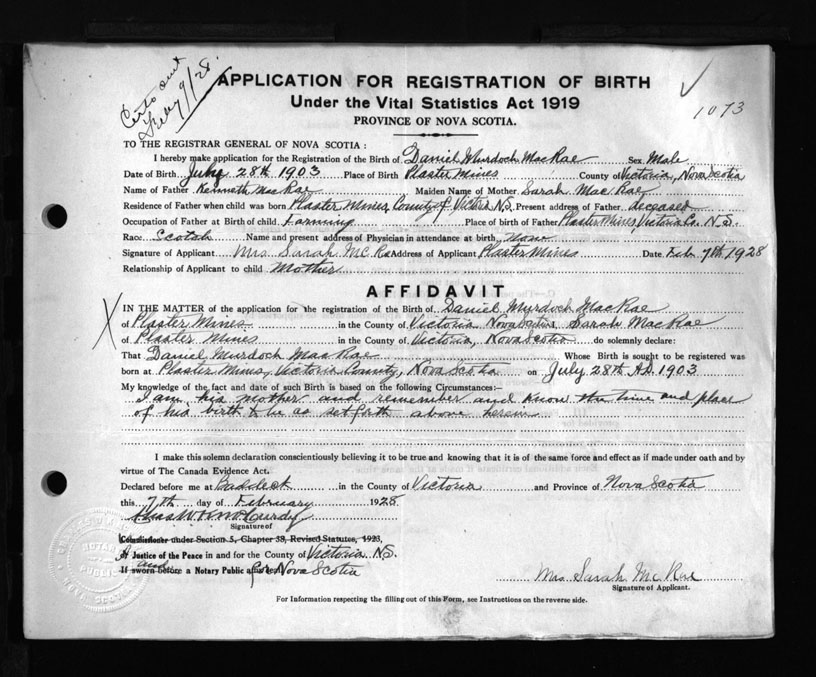 Certo out
Feby 9/28.
APPLICATION FOR REGISTRATION OF BIRTH
Under the Vital Statistics Act 1919
1073
PROVINCE OF NOVA SCOTIA.
TO THE REGISTRAR GENERAL OF NOVA SCOTIA :
I hereby make application for the Registration of the Birth of Daniel Murdoch MacRae Sex Male
Date of Birth July 28th 1903 Place of Birth Plaster Mines County of Victoria, Nova Scotia
Name of Father Kenneth MacRae Maiden Name of Mother Sarah Mac Rae
Residence of Father when child was born Plaster Mines, County of Victoria N.S. Present address of Father deceased
Occupation of Father at Birth of child Farming Place of birth of Father Plaster Mines, Victoria Co. N.S.
Race Scotch Name and present address of Physician in attendance at birth None
Signature of Applicant Mrs Sarah McRae Address of Applicant Plaster Mines Date Feb. 7th 1928
Relationship of Applicant to child Mother
AFFIDAVIT
IN THE MATTER of the application for the registration of the Birth of Daniel Murdoch MacRae
of Plaster Mines in the County of Victoria Nova Scotia, Sarah MacRae
of Plaster Mines in the County of Victoria, Nova Scotia do solemnly declare:
That Daniel Murdoch MacRae Whose Birth is sought to be registered was
born at Plaster Mines, Victoria County, Nova Scotia on July 28th A.D. 1903
My knowledge of the fact and date of such Birth is based on the following Circumstances:-
I am his mother and remember and know the time and place
of his birth to be as set forth above herein
I make this solemn declaration conscientiously believing it to be true and knowing that it is of the same force and effect as if made under oath and by
virtue of The Canada Evidence Act.
Declared before me at Baddeck in the County of Victoria and Province of Nova Scotia
this 7th day of February 1928
McCurdy
Signature of
Commissioner under Section 5, Chapter 38, Revised Statutes, 1923,
A Justice of the Peace in and for the County of Victoria N.S.
and
If sworn before a Notary Public for Nova Scotia
Mrs Sarah McRae
Signature of Applicant.
For Information respecting the filling out of this Form, see Instructions on the reverse side.